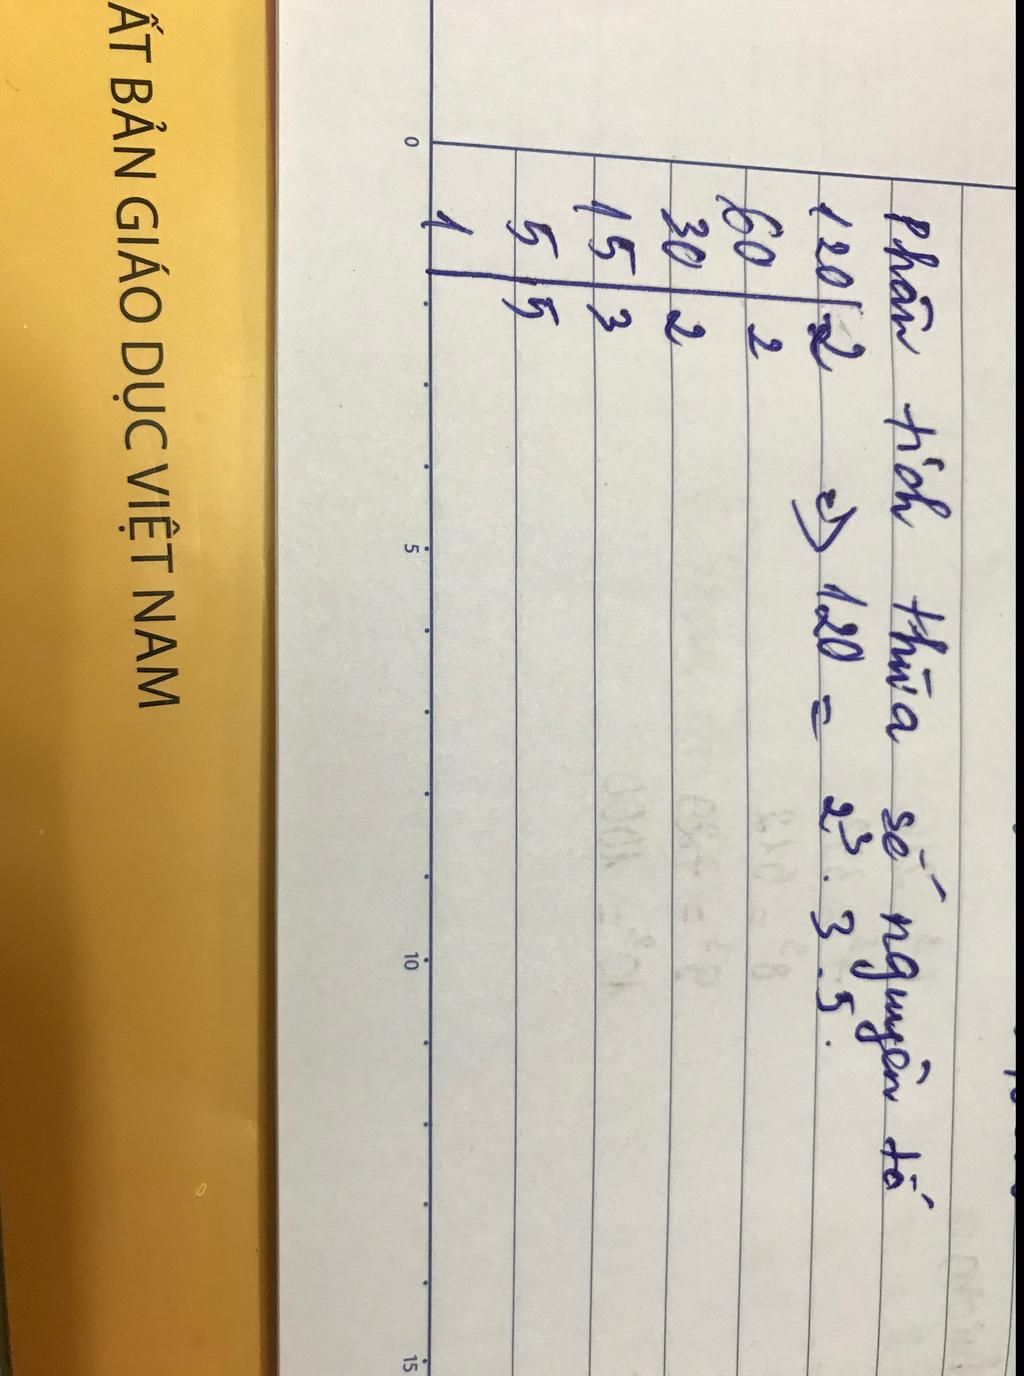 Phân tích thừa số nguyên tố
120 2 => 120 = 2³ . 3 . 5.
60 2
30 2
15 3
5 5
1
0 5 10 15
ẤT BẢN GIÁO DỤC VIỆT NAM